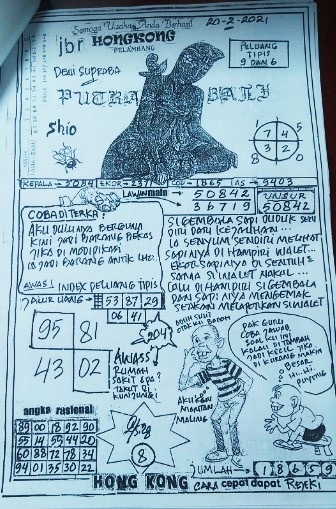 Semoga Usaha Anda Berhasil
20-2-2021
jbr HONGKONG
PELAMBANG
PELUANG
TIPIS
9 DAN 6
Dewi Supraba
PUTRA BALI
Shio
1 7 4 5
8 3 2 0
KEPALA → 5094 EKOR → 2371 COP → 1865 AS → 9403
LAWAN main
50842
36719
UNSUR
50842
COBA DI TERKA:
AKU DULUNYA BERGUNA
KINI JADI BARANG BEKAS
JIKA DI MODIPIKASI
IA JADI BARANG ANTIK LHO.
SI GEMBALA SAPI DUDUK
DIRI DARI KEJAUHAN...
IA SENYUM SENDIRI MELIHAT
SAPINYA DI HAMPIRI WALET.
EKOR SAPINYA DI SENTUH
SAMA SI WALET NAKAL...
LALU DI HAMPIRI SI GEMBALA
DAN SAPINYA MENGEMAK
SI WALET
AWAS! INDEX PELUANG TIPIS
DAUR UANG → 53 87 29
06 41
95 81
43 02
204
AWASS
RUMAH
SAKIT APA?
TAKUT DI
KUNJUNGI
AKU KAN
MANTAN
MALING
PAK GURU
COBA JAWAB
SOAL KU INI
KALAU DI TAMBAH
JADI KECIL JIKA
DI KURANG MAKIN
BESAR
HI..HI
PUYENG
angka rasional
89 00 18 92 90
55 14 55 44 20
60 88 72 78 34
94 01 35 30 22
8
JUMLAH → 1 8 6 5 9
HONG KONG CARA cepat dapat REJEKI